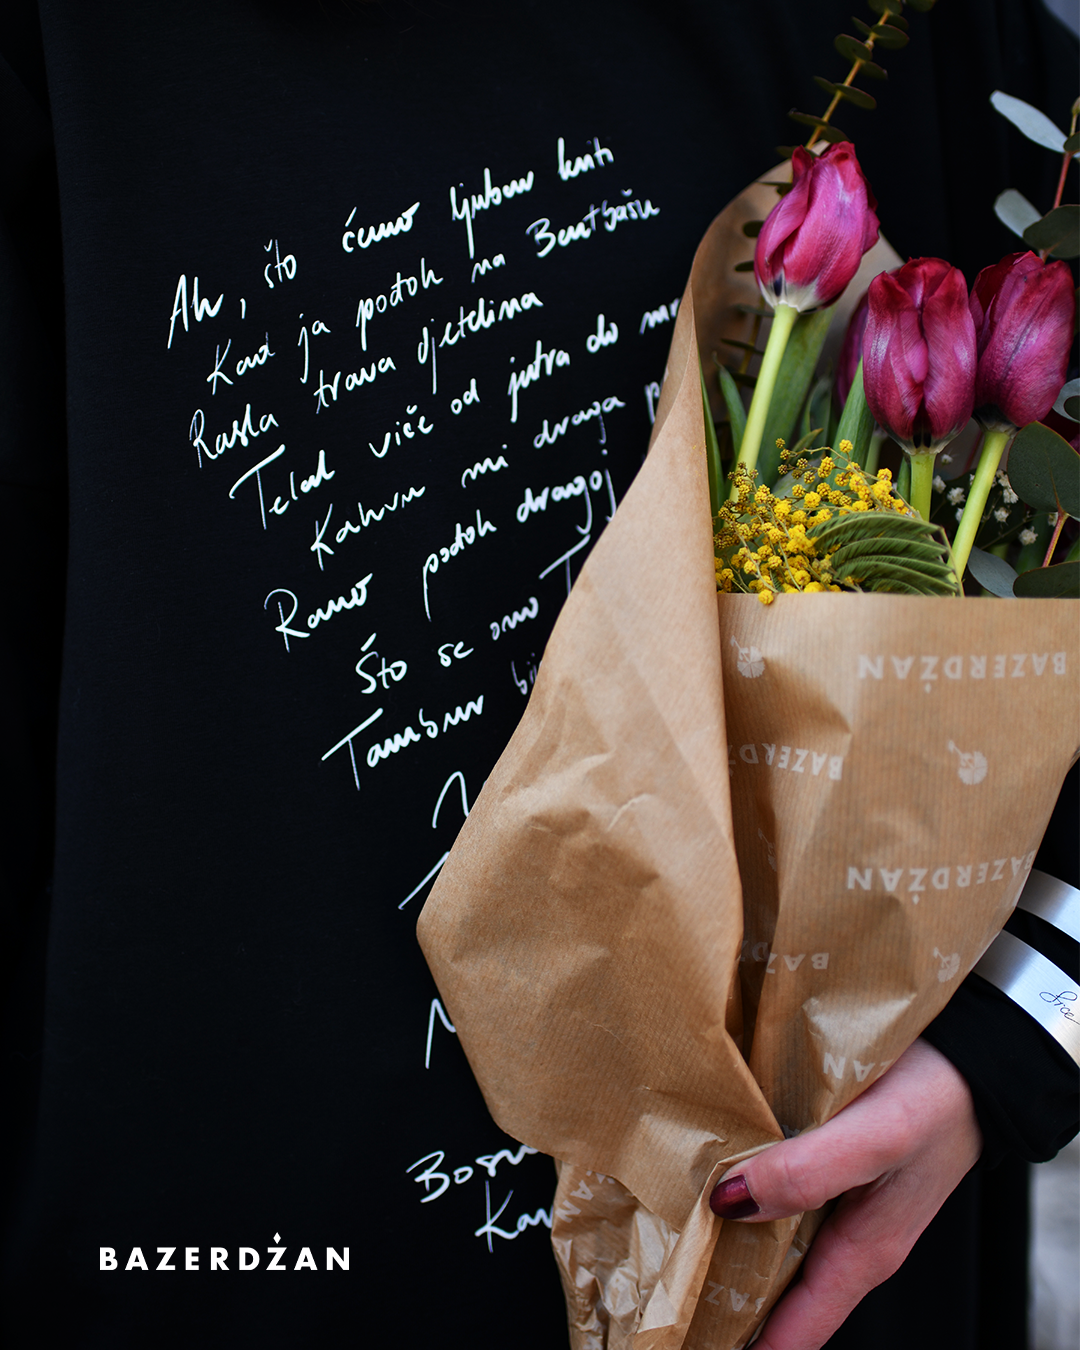 Ah, što ćemo ljubav kriti
Kad ja pođoh na Bentbašu
Rasla trava djetelina
Telal viče od jutra do
Kahvu mi draga
Rano pođoh dragoj
Što se ono
Tambur
BAZERDŽAN
BAZERDŽAN
BAZERDŽAN
BAZERDŽAN
BAZERDŽAN
Srce
BAZERDŽAN